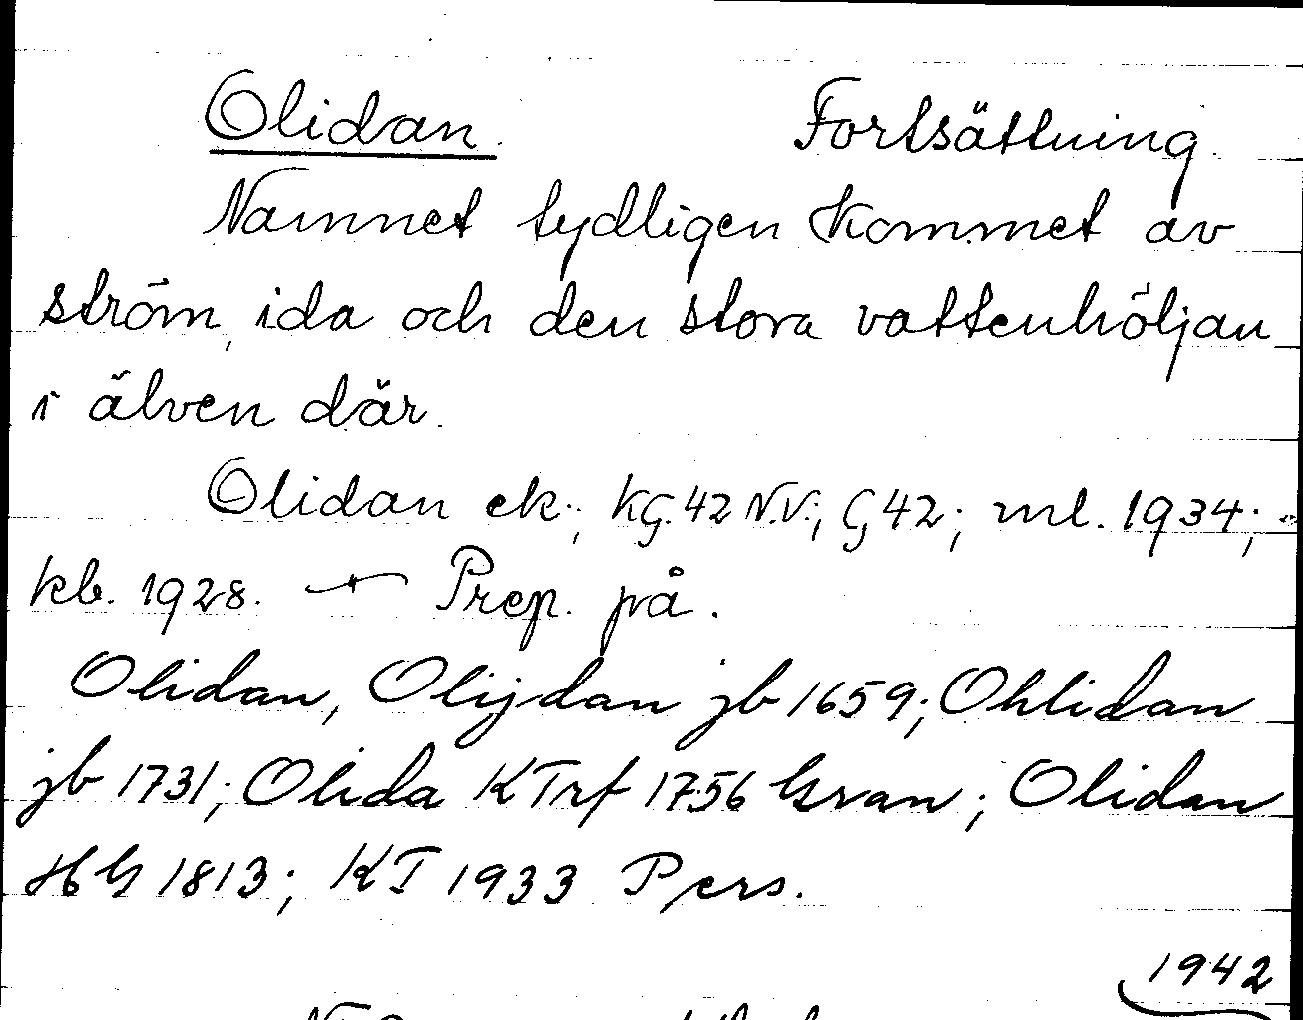 Olidan. Fortsättning.
Namnet tydligen kommet av
ström, ida och den stora vattenhöljan
i älven där.
Olidan ek.; KG.42 N.V.; G 42; ml. 1934;
kb. 1928. — Prep. på.
Olidan, Olijdan jb 1659; Ohlidan
jb 1731; Olida KTrf 1756 Gran; Olidan
HG 1813; KT 1933 Pers.
1942